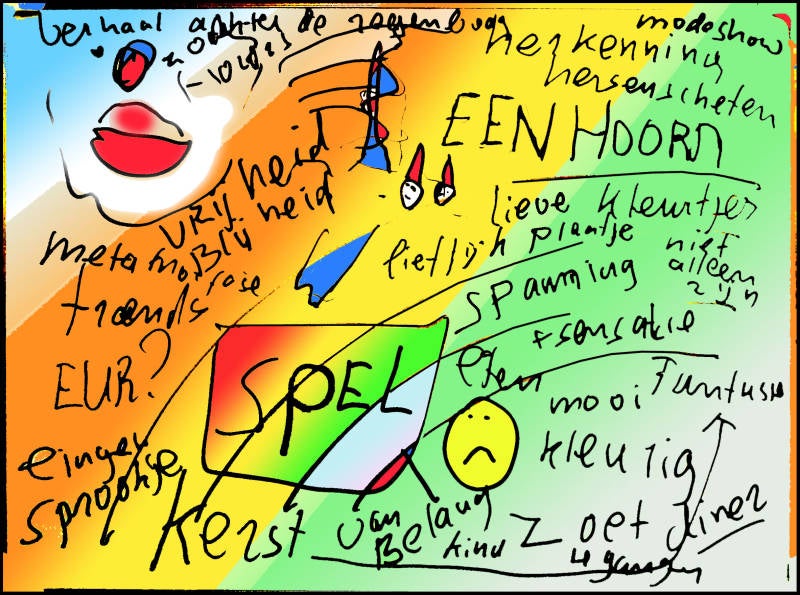 Verhaal achter de regenboog
modeshow
herkenning
hersenscheten
EENHOORN
vrijheid
Blijheid
lieve kleurtjes
lieflijk plaatje
niet
alleen
zijn
metamor
rose
trends
spanning
+sensatie
EUR?
SPEL
eten
mooi
Fantasie
kleurig
eingen
sprookje
Kerst van Belang
kind
zoet diner
4 gangen